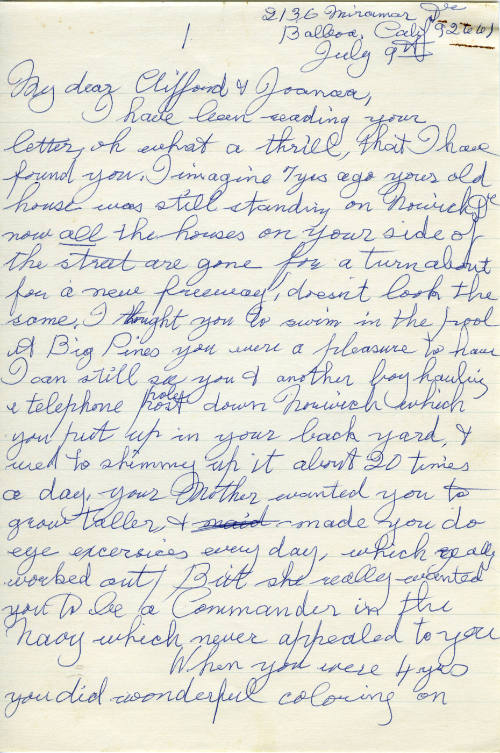 2136 Miramar Dr
1 Balboa, Calif 92661
July 9th
My dear Clifford & Joanna,
I have been reading your
letter, oh what a thrill, that I have
found you. I imagine 7 yrs ago yours old
house was still standing on Norwich Dr
now all the houses on your side of
the street are gone for a turn about
for a new freeway, doesn't look the
same. I thought you to swim in the pool
at Big Pines you were a pleasure to have
I can still see you & another boy hauling
a telephone post poles down Norwich which
you put up in your back yard, &
used to shimmy up it about 20 times
a day, your Mother wanted you to
grow taller, & said made you do
eye excersices every day, which really
worked out! But she really wanted
you to be a Commander in the
Navy which never appealed to you
When you were 4 yrs
you did wonderful coloring on